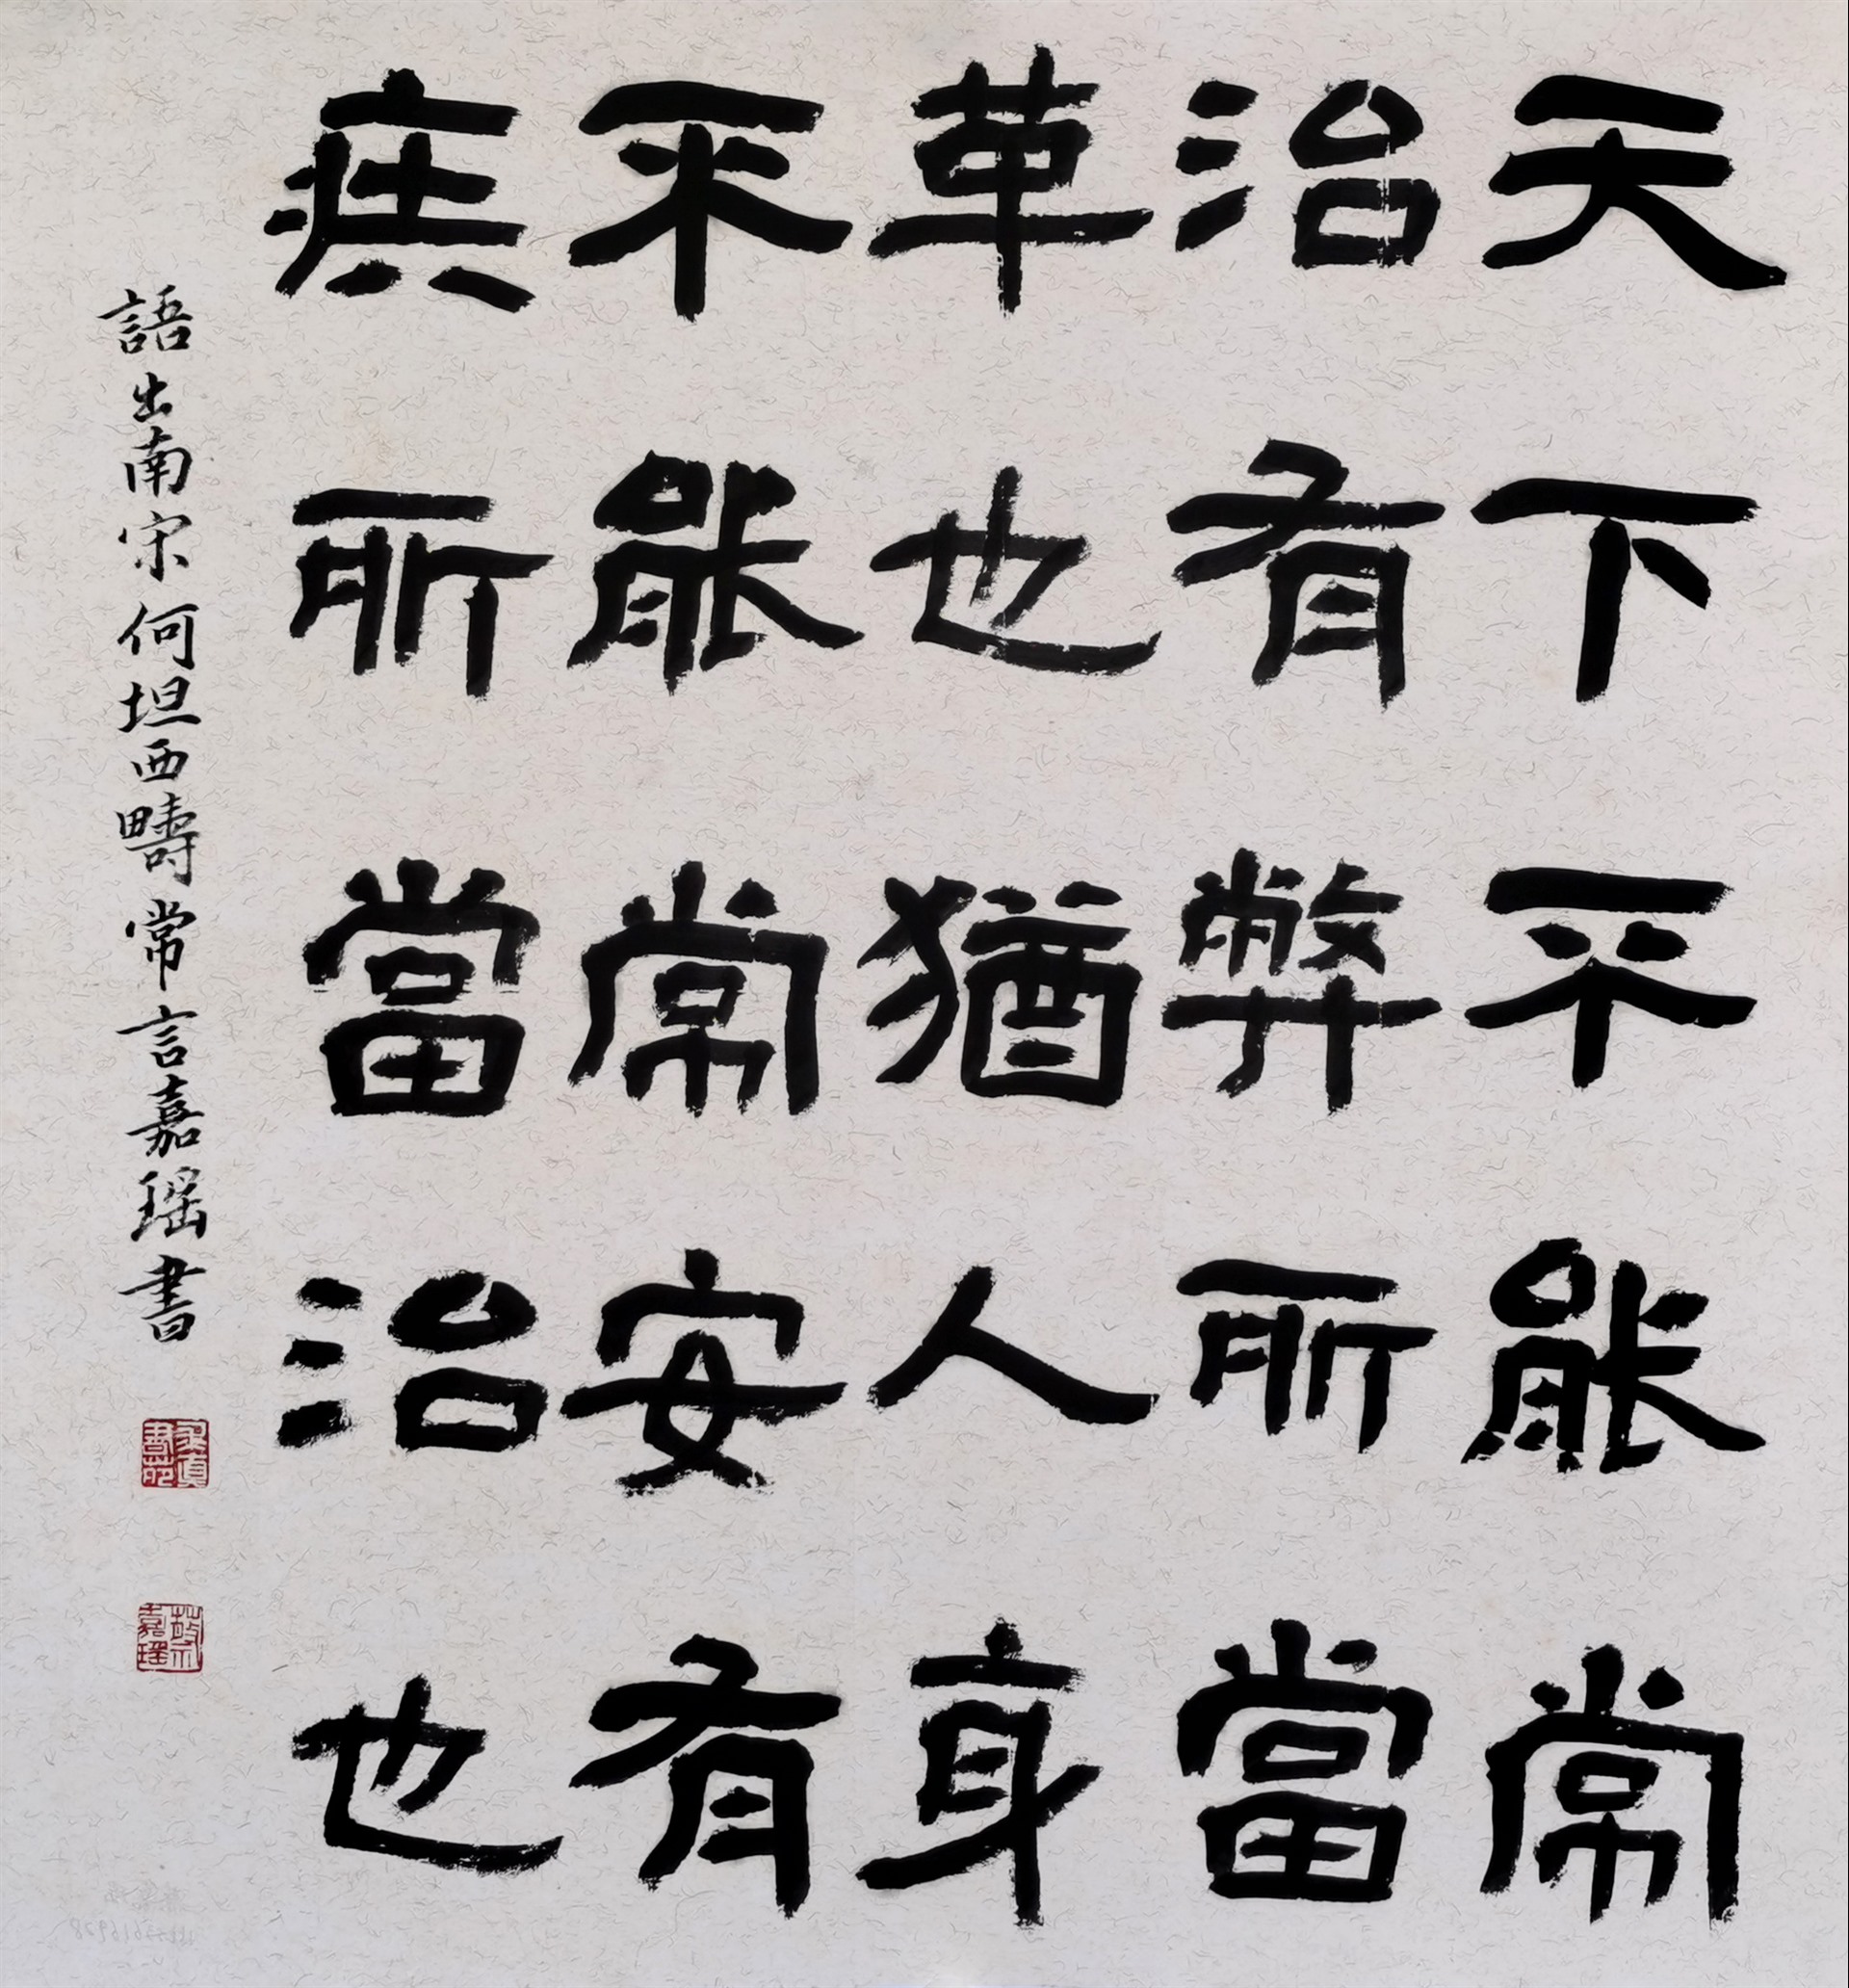 天下不能常
治有弊所當
革也猶人身
不能常安有
疾所當治也
語出南宋何坦西疇常言嘉瑶書